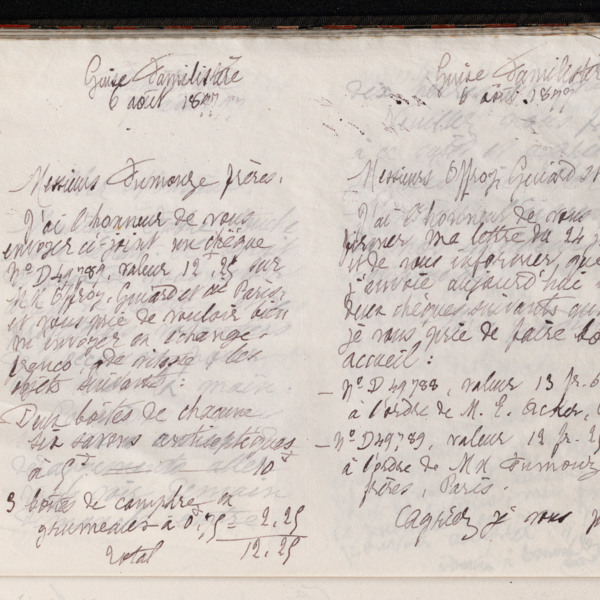 Guise Familistère
6 août 1897
Messieurs Fumouze frères.
J'ai l'honneur de vous
envoyer ci-joint un chèque
N° D49789, valeur 12f,25 sur
MM Offroy, Guiard et Cie Paris,
et vous prie de vouloir bien
m'envoyer en échange
franco de les
objets suivants :
Deux boîtes de chacune
six savons antiseptiques
à 5f 10f
3 boîtes de camphre en
grumeaux à 0f,75 = 2,25
Total 12.25
Guise Familistère
6 août 1897
Messieurs Offroy Guiard &
J'ai l'honneur de vous
ma lettre du 24
et de vous informer que
j'envoie aujourd'hui
deux chèques suivants
je vous prie de faire bo
accueil :
– N° D49788, valeur 13 fr. 6
à l'ordre de M. E.
– N° D49789, valeur 12 fr. 25
à l'ordre de MM Fumouz
frères, Paris.
Agréez, je vous p